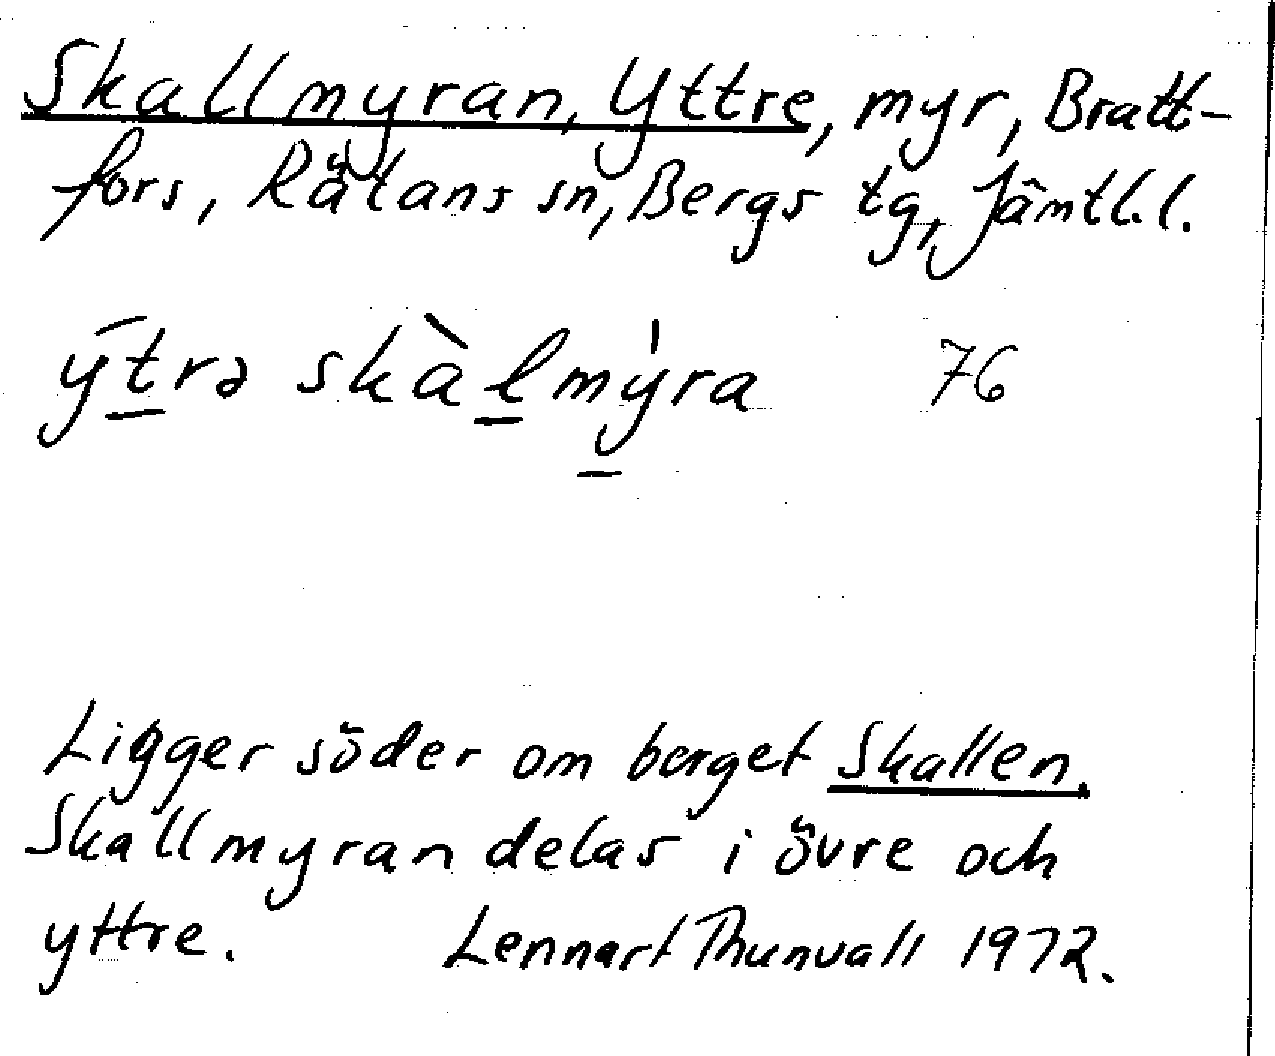 Skallmyran, Yttre, myr, Bratt-
fors, Rätans sn, Bergs tg, Jämtl. l.
ȳt̲rə skàl̲mý̲ra 76
Ligger söder om berget Skallen.
Skallmyran delas i övre och
yttre. Lennart Thunvall 1972.